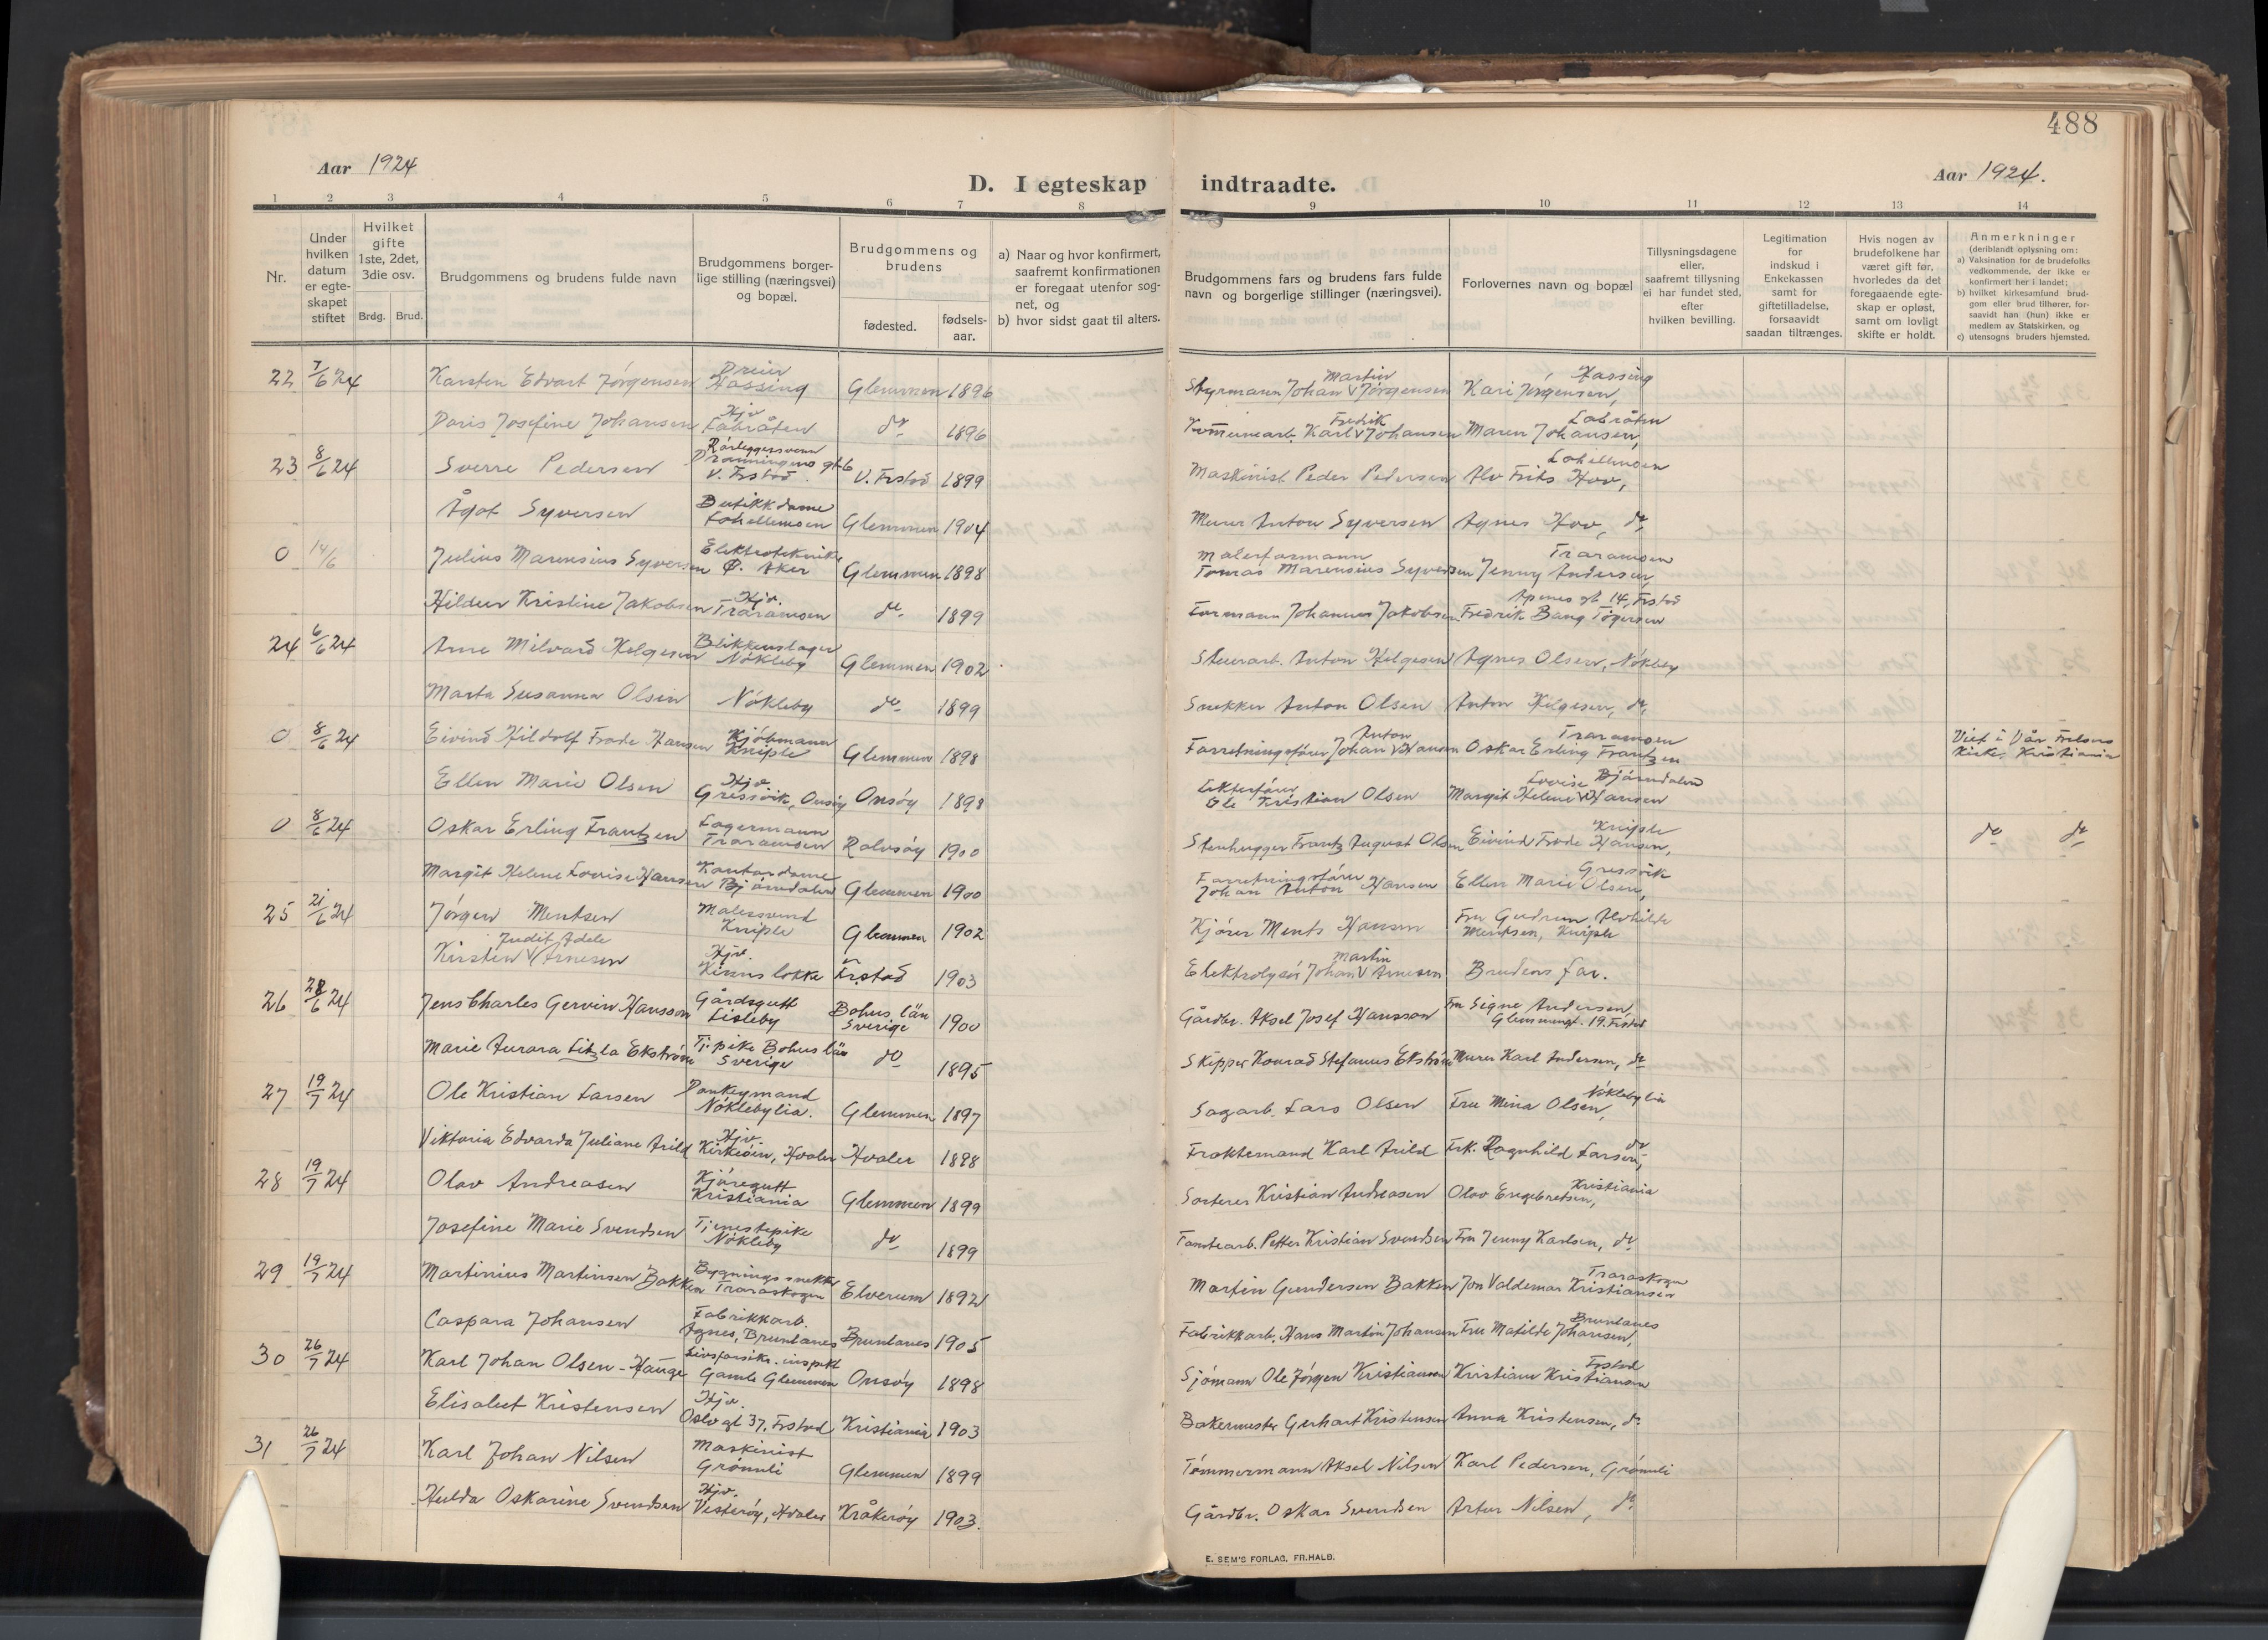 488
Aar 1924
D. I egteskap indtraadte.
Aar 1924.
1 2 3 4 5 6 7 8 9 10 11 12 13 14
Nr.
Under hvilken datum er egte- skapet stiftet
Hvilket gifte 1ste, 2det, 3die osv.
Brdg. Brud.
Brudgommens og brudens fulde navn
Brudgommens borger- lige stilling (næringsvei) og bopæl.
Brudgommens og brudens
fødested.
fødsels- aar.
a) Naar og hvor konfirmert, saafremt konfirmationen er foregaat utenfor sog- net, og
b) hvor sidst gaat til alters.
Brudgommens fars og brudens fars fulde navn og borgerlige stillinger (næringsvei).
Forlovernes navn og bopæl
Tillysningsdagene eller, saafremt tillysning ei har fundet sted, efter hvilken bevilling.
Legitimation for indskud i Enkekassen samt for giftetilladelse, forsaavidt saadan tiltrænges.
Hvis nogen av brudefolkene har været gift før, hvorledes da det foregaaende egte- skap er opløst, samt om lovligt skifte er holdt.
Anmerkninger
(deriblandt oplysning om:
a) Vaksination for de brudefolks vedkommende, der ikke er konfirmert her i landet;
b) hvilket kirkesamfund brud- gom eller brud tilhører, for- saavidt han (hun) ikke er medlem av Statskirken, og
c) utensogns bruders hjemsted.
22 7/6 24 Karsten Edvart Jørgensen Dreier Hassing Glemmen 1896 Styrmann Johan Martin Jørgensen Kari Jørgensen, Hassing
Doris Josefine Johansen Hjv Labråten do 1896 Kommunearb. Karl Fredrik Johansen Maren Johansen, Labråten
23 8/6 24 Sverre Pedersen Rørleggersvenn Dronningens gt 6 V. Frstad V. Frstad 1899 Maskinist Peder Pedersen Alv Frits Hov, Lahellemoen
Ågot Syversen Butikkdame Lahellemoen Glemmen 1904 Murer Anton Syversen Agnes Hov, do
0 14/6 Julius Marensius Syversen Elektrotekniker Ø. Aker Glemmen 1898 Malerformann Tomas Marensius Syversen Jenny Andersen, Traramoen
Hildur Kristine Jakobsen Hjv. Traramoen do 1899 Formann Johannes Jakobsen Fredrik Bang Tøgersen Apenes gt 14, Frstad
24 6/6 24 Arne Milvard Helgesen Blikkenslager Nøkleby Glemmen 1902 Stenarb. Anton Helgesen Agnes Olsen, Nøkleby
Marta Susanna Olsen Nøkleby do 1899 Snekker Anton Olsen Anton Helgesen, do
0 8/6 24 Eivind Hildolf Frode Hansen Kjøbmann Kniple Glemmen 1898 Forretningsfører Johan Anton Hansen Oskar Erling Frantzen Traramoen Viet i Vår Frelsers Kirke, Kristiania
Ellen Marie Olsen Hjv Gressvik, Onsøy Onsøy 1898 Lekterfører Ole Kristian Olsen Margit Helene Lovise Hansen Bjørndalen
0 8/6 24 Oskar Erling Frantzen Lagermann Traramoen Rolvsøy 1900 Stenhugger Frantz August Olsen Eivind Frode Hansen, Kniple do do
Margit Helene Lovise Hansen Kontordame Bjørndalen Glemmen 1900 Forretningsfører Johan Anton Hansen Ellen Marie Olsen, Gressvik
25 21/6 24 Jørgen Mentsen Malersvend Kniple Glemmen 1902 Kjører Ments Hansen Fru Gudrun Alvhilde Mentsen, Kniple
Kirsten Judit Adele Arnesen Hjv. Kinnsløkka Frstad 1903 Elektrolysør Johan Martin Arnesen Brudens far.
26 28/6 24 Jens Charles Gervin Hansson Gårdsgutt Lisleby Bohus län Sverige 1900 Gårdbr. Aksel Josef Hansson Fru Signe Andersen, Glemmengt. 19. Frstad
Marie Aurora Litzla Ekström Tj.pike Bohus län Sverige do 1895 Skipper Konrad Stefanus Ekström Murer Karl Andersen, do
27 19/7 24 Ole Kristian Larsen Donkeymand Nøklebylia. Glemmen 1897 Sagarb. Lars Olsen Fru Mina Olsen, Nøklebylia
Viktoria Edvarda Juliane Arild Hjv. Kirkeøen, Hvaler Hvaler 1898 Fraktemand Karl Arild Frk. Ragnhild Larsen, do
28 19/7 24 Olav Andreasen Kjøregutt Kristiania Glemmen 1899 Sorterer Kristian Andreasen Olav Engebretsen, Kristiania
Josefine Marie Svendsen Tjenestepike Nøkleby do 1899 Tomtearb. Petter Kristian Svendsen Fru Jenny Karlsen, do
29 19/7 24 Martinius Martinsen Bakken Bygningssnekker Traraskogen Elverum 1892 Martin Gundersen Bakken Jon Valdemar Kristiansen Traraskogen
Caspara Johansen Fabrikkarb. Agnes, Brunlanes Brunlanes 1905 Fabrikkarb. Hans Martin Johansen Fru Matilde Johansen, Brunlanes
30 26/7 24 Karl Johan Olsen-Hauge Livsforsikr. inspekt Gamle Glemmen Onsøy 1898 Sjømann Ole Jørgen Kristiansen Kristian Kristiansen Frstad
Elisabet Kristensen Hjv. Oslo gt 37, Frstad Kristiania 1903 Bakermester Gerhart Kristensen Anna Kristensen, do
31 26/7 24 Karl Johan Nilsen Maskinist Grønnli Glemmen 1899 Tømmermann Aksel Nilsen Karl Pedersen, Grønnli
Hulda Oskarine Svendsen Hjv. Vesterøy, Hvaler Kråkerøy 1903. Gårdbr. Oskar Svendsen Artur Nilsen, do
E. SEM'S FORLAG, FR.HALD.